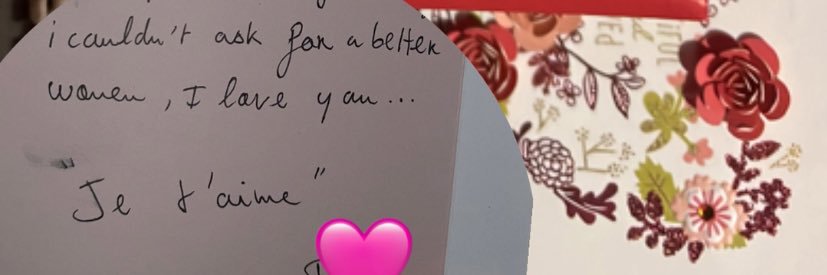 i couldn't ask for a better
women, I love you...
"Je t'aime"